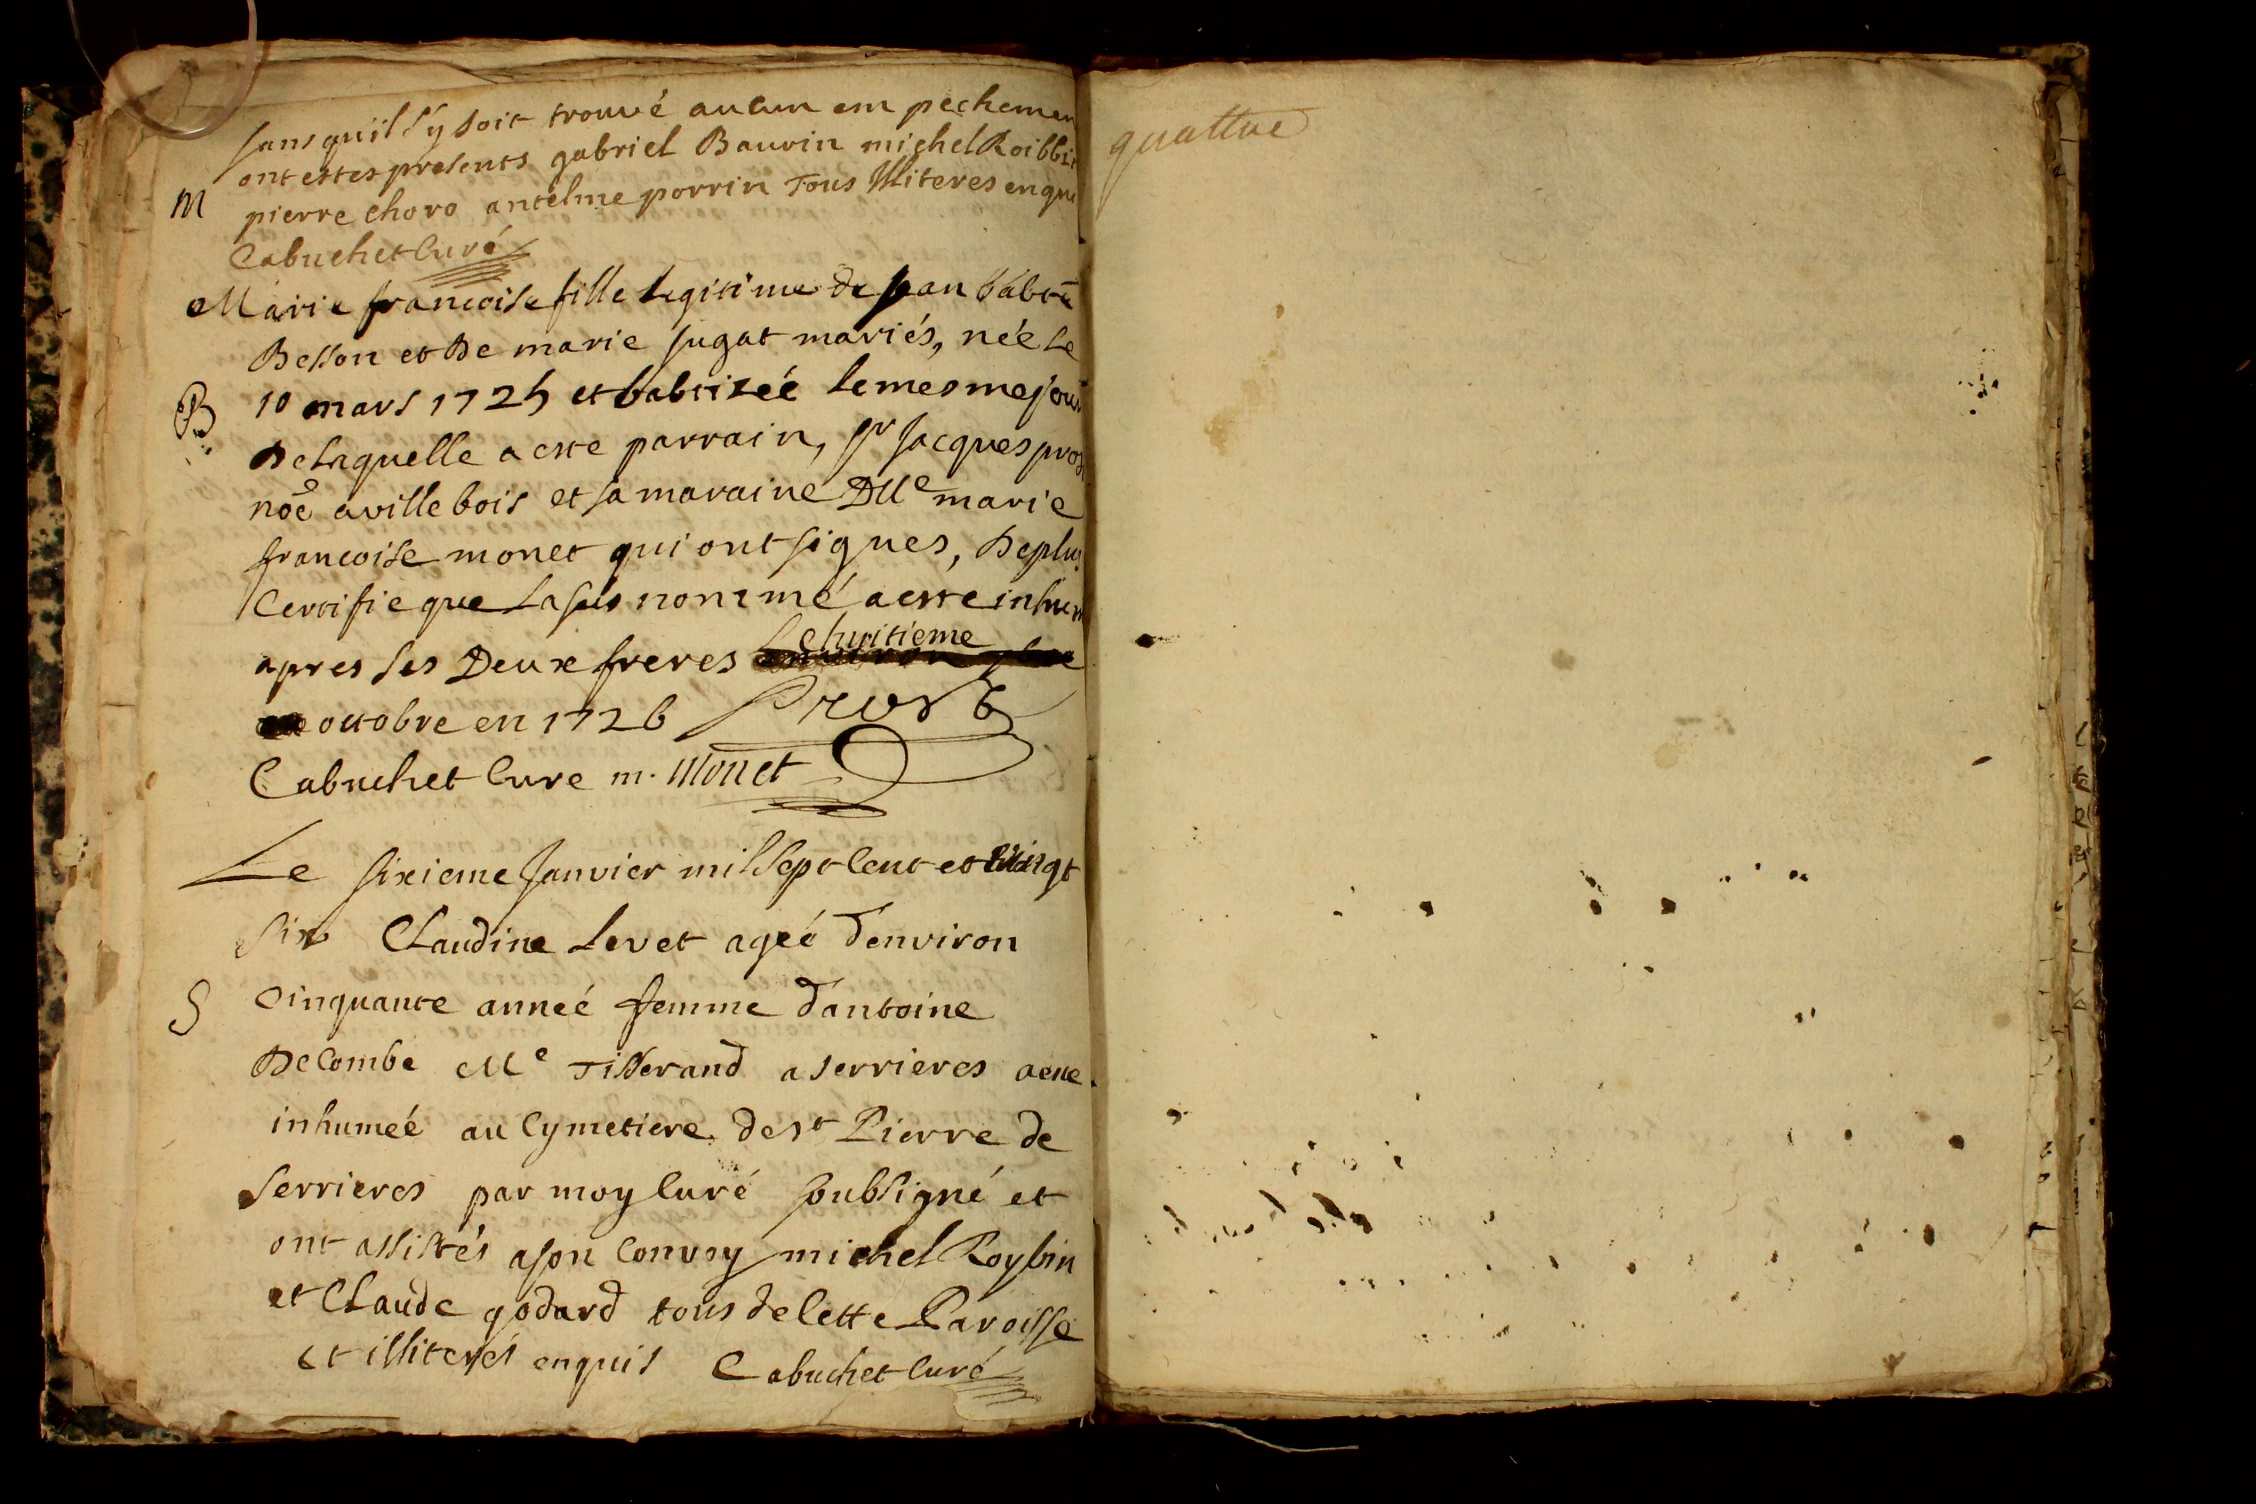 sans qu'il s'y soit trouvé aucun em pechemen
ont estes presents gabriel Bauvin michel Roibbin
M
pierre choro antelme porrin Tous illiteres enqui
Cabuchet Curé
Marie francoise fille legitime de jean babte
Besson et De marie jugat mariés, née le
B
10 mars 1725 et babtizéé le mesme jour
De laquelle a este parrain, sr jacques
noe a villebois et sa maraine Dlle marie
francoise monet qui ont signes, De plus
Certifie que la sus nommé a este inhum
apres ses Deux freres le huitieme
octobre en 1726
Cabuchet Cure m. Monet
Le sixieme Janvier mil sept Cent et vingt
six Claudine Levet ageé d'environ
S
Cinquante anneé femme d'antoine
DeCombe Me Tisserand a serrieres a este
inhumeé au Cymetiere de st Pierre de
Serrieres par moy Curé soubsigné et
ont assistés a son Convoy michel Roybin
et Claude godard tous de Cette Paroisse
et illiterés enquis Cabuchet Curé
quattre